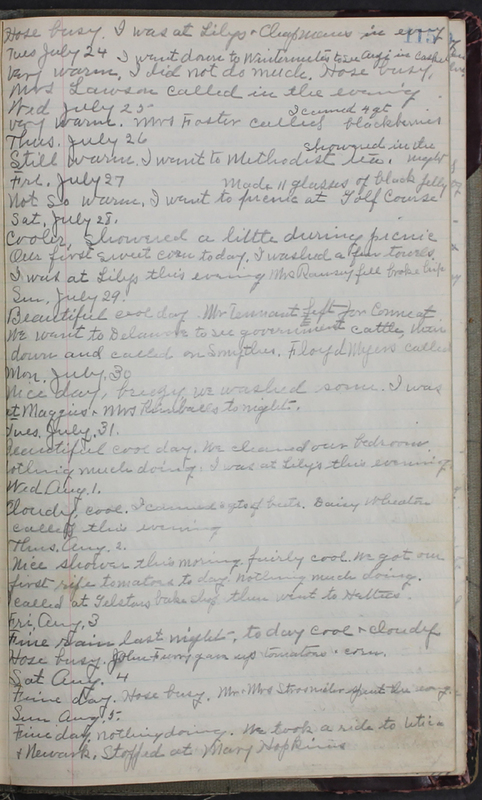 Hose busy. I was at Lilys & Chapmans in evening
115
Tues July 24 I went down to Wintermutes to see in casket
Very warm, I did not do much. Hose busy,
Mrs Lawson called in the evening
Wed July 25 I canned 4 qt
Very warm. Mrs Foster called blackberries
Thurs. July 26 Showered in the
Still warm. I went to Methodist night
Fri. July 27 Made 11 glasses of black jelly
Not so warm, I went to picnic at Golf Course
Sat. July 28.
Cooler, showered a little during picnic
Our first sweet corn today. I washed a few towels
I was at Lilys this evening Mrs Ramsey fell broke hip
Sun. July 29.
Beautiful cool day. Mr Tennant left for Conneaut
We went to Delaware to see government cattle, then
down and called on Smythes. Floyd Myers called
Mon. July. 30
Nice day, breezy we washed some. I was
at Maggies & Mrs Kimballs tonight.
Tues. July. 31.
Beautiful cool day. We cleaned our bedroom.
nothing much doing. I was at Lilys this evening
Wed Aug. 1.
Cloudy, cool. I canned qts of beets. Daisy Wheaton
called this evening
Thurs. Aug. 2.
Nice shower this morning fairly cool. We got our
first ripe tomatoes to day. Nothing much doing.
called at bake shop then went to Hatties.
Fri. Aug. 3
Fine rain last night, to day cool & cloudy
Hose busy. John Ferry gave us tomatoes & corn.
Sat Aug. 4
Fine day. Hose busy. Mr & Mrs spent the
Sun Aug 5.
Fine day, nothing doing. We took a ride to Utica
& Newark, Stopped at Mary Hopkins